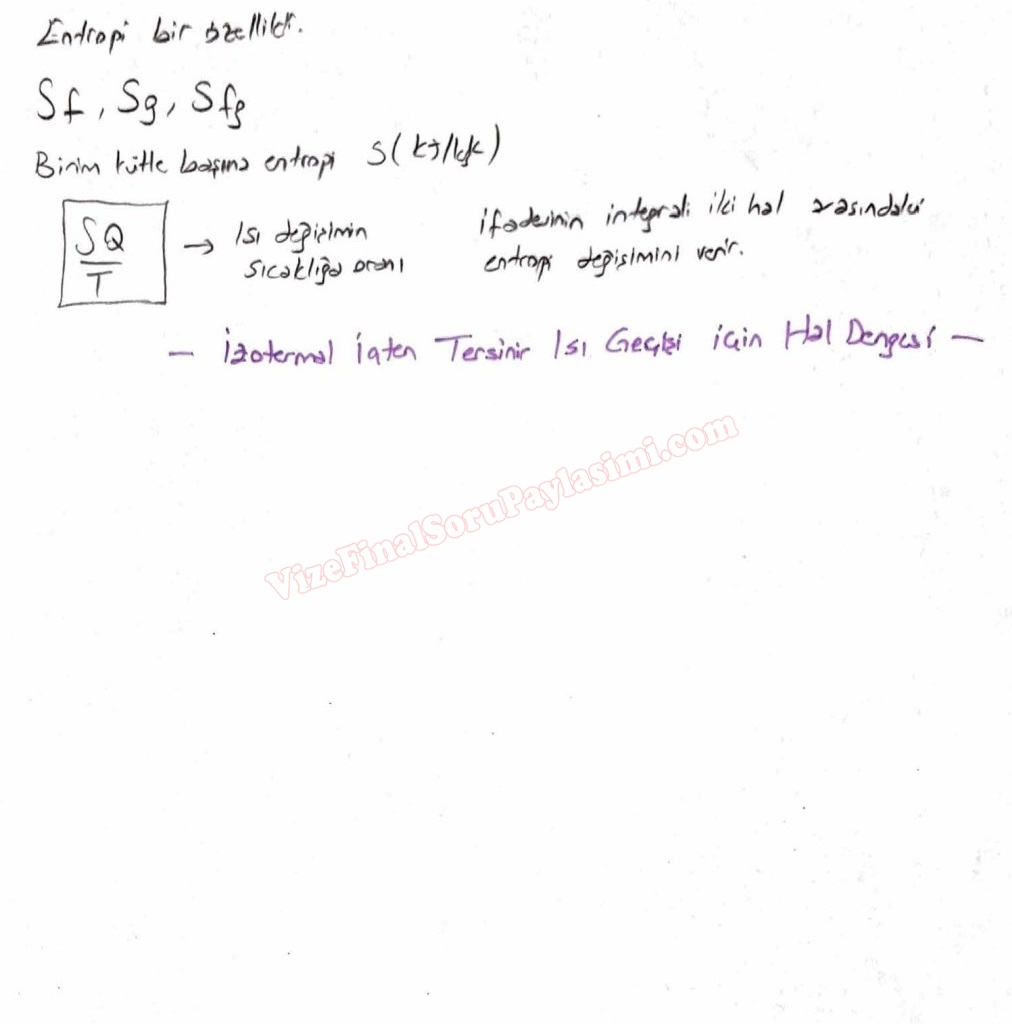 Entropi bir özelliktir.
Sf, Sg, Sfg
Birim kütle başına entropi S(kJ/kgK)
δQ/T → Isı değişimin sıcaklığa oranı
ifadesinin integrali iki hal arasındaki
entropi değişimini verir.
— İzotermal İçten Tersinir Isı Geçişi için Hal Dengesi —
VizeFinalSoruPaylasimi.com